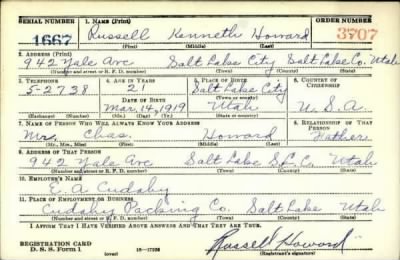 SERIAL NUMBER 1. NAME (Print) ORDER NUMBER
1667 Russell Kenneth Howard 3707
(First) (Middle) (Last)
2. ADDRESS (Print)
942 Yale Ave Salt Lake City Salt Lake Co. Utah
(Number and street or R. F. D. number) (Town) (County) (State)
3. TELEPHONE 4. AGE IN YEARS 5. PLACE OF BIRTH 6. COUNTRY OF CITIZENSHIP
5-2738 21 Salt Lake City
DATE OF BIRTH (Town or county)
Mar. 14, 1919 Utah U.S.A.
(Exchange) (Number) (Mo.) (Day) (Yr.) (State or country)
7. NAME OF PERSON WHO WILL ALWAYS KNOW YOUR ADDRESS 8. RELATIONSHIP OF THAT PERSON
Mr. Chas. Howard Father
(Mr., Mrs., Miss) (First) (Middle) (Last)
9. ADDRESS OF THAT PERSON
942 Yale Ave Salt Lake S.L.C. Utah
(Number and street or R. F. D. number) (Town) (County) (State)
10. EMPLOYER'S NAME
E. A. Cudahy
11. PLACE OF EMPLOYMENT OR BUSINESS
Cudahy Packing Co. Salt Lake Utah
(Number and street or R. F. D. number) (Town) (County) (State)
I AFFIRM THAT I HAVE VERIFIED ABOVE ANSWERS AND THAT THEY ARE TRUE.
REGISTRATION CARD
D. S. S. FORM 1 (over) 16-17105 Russell Howard
(Registrant's signature)